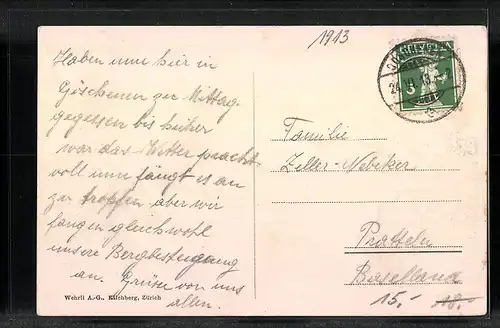 1913
Haben nun hier in
Göschenen zu Mittag
gegessen bis hieher
war das Wetter pracht
voll nun fängt es an
zu tropfen aber wir
fangen gleichwohl
unsere Bergbesteigung
an. Grüsse von uns
allen.
Familie
Zeller-Nebiker
Pratteln
Baselland
15.- 18.-
Wehrli A.-G., Kilchberg, Zürich
5